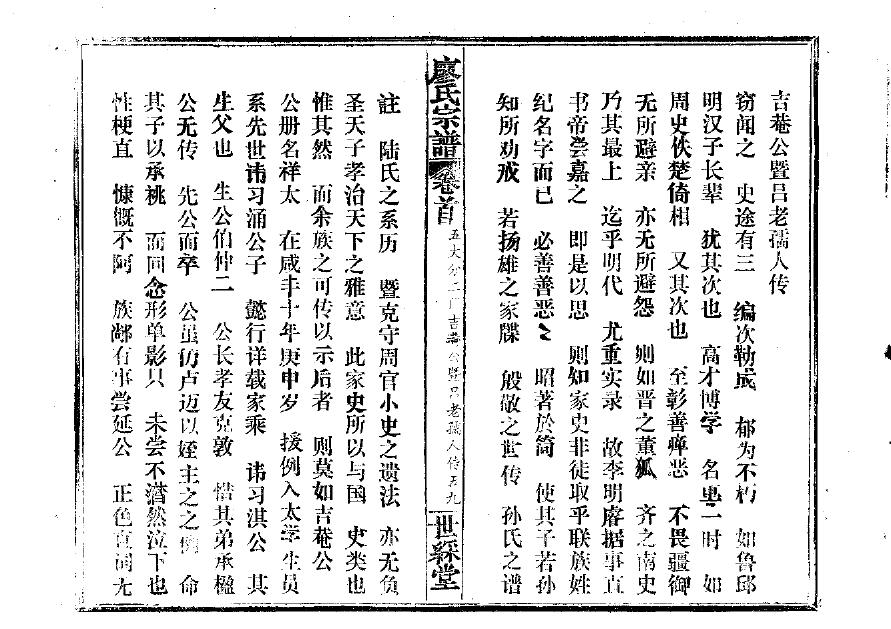 吉菴公暨吕老孺人传
窃闻之 史途有三 编次勒成 郁为不朽 如鲁邱
明汉子长辈 犹其次也 高才博学 名重一时 如
周史佚楚倚相 又其次也 至彰善瘅恶 不畏疆御
无所避亲 亦无所避怨 则如晋之董狐 齐之南史
乃其最上 迄乎明代 尤重实录 故李明睿据事直
书帝尝嘉之 即是以思 则知家史非徒取乎联族姓
纪名字而已 必善善恶〻 昭著於简 使其子若孙
知所劝戒 若扬雄之家牒 殷敬之世传 孙氏之谱
廖氏宗譜 卷首 五大分二门吉菴公暨吕老孺人传五九 世綵堂
註 陆氏之系历 暨克守周官小史之遗法 亦无负
圣天子孝治天下之雅意 此家史所以与国 史类也
惟其然 而余族之可传以示后者 则莫如吉菴公
公册名祥太 在咸丰十年庚申岁 援例入太学生员
系先世讳习涌公子 懿行详载家乘 讳习淇公 其
生父也 生公伯仲二 公长孝友克敦 惜其弟承楹
公无传 先公而卒 公虽仿卢迈以姪主之之例 命
其子以承祧 而回念形单影只 未尝不潸然泣下也
性梗直 慷慨不阿 族鄰有事尝延公 正色直词无